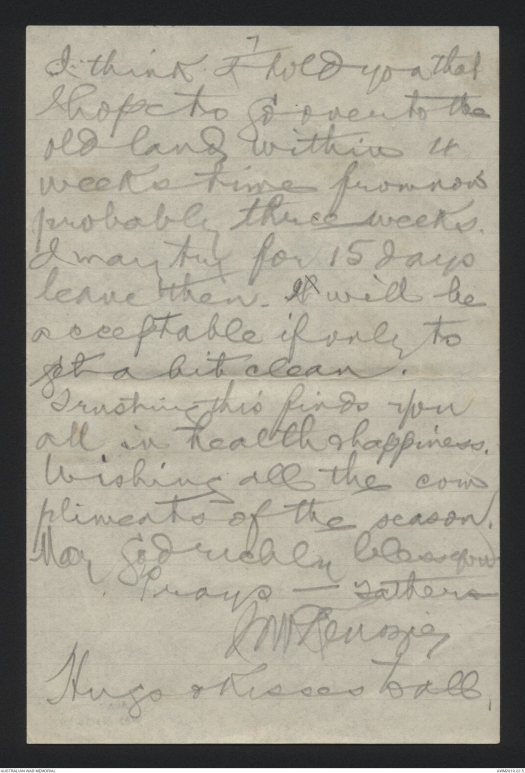 7
I think I told you that
I hope to go over to the
old land within 4
weeks time from now
probably three weeks.
I may try for 15 days
leave then. It will be
acceptable if only to
get a bit clean.
Trusting this finds you
all in health & happiness.
Wishing all the com
pliments of the season.
May God richly bless you
Prays — Fathers
McKenzie
Hugs & Kisses to all.
AUSTRALIAN WAR MEMORIAL